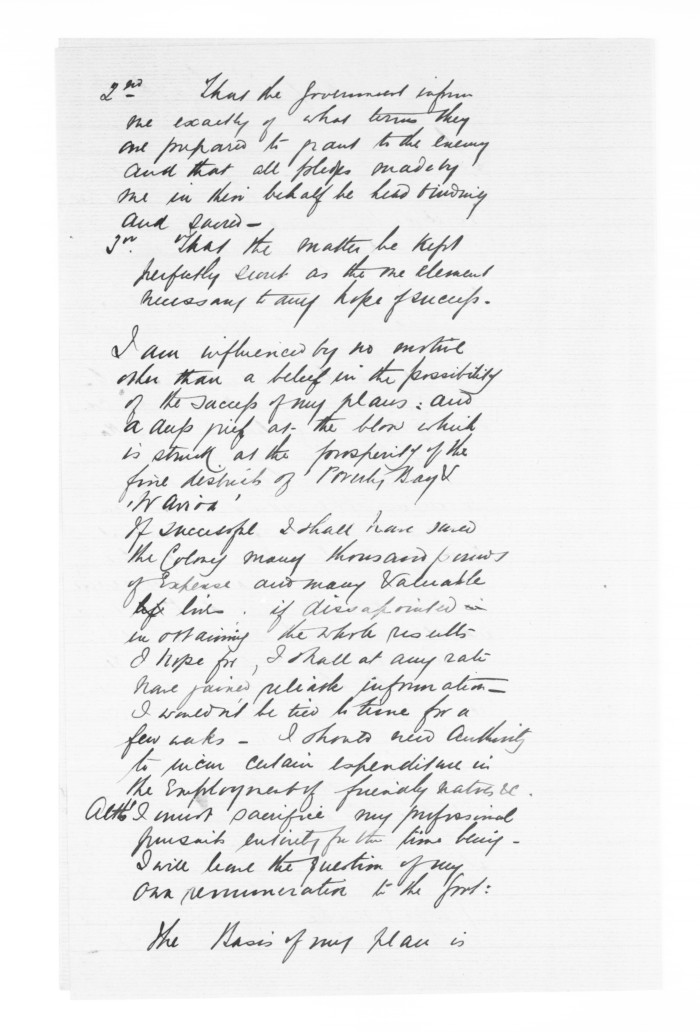 2nd That the Government inform
me exactly of what terms they
are prepared to grant to the enemy
and that all pledges made by
me in their behalf be held binding
and sacred —
3rd. That the matter be kept
perfectly secret as the one element
necessary to any hope of success.
I am influenced by no motive
other than a belief in the possibility
of the success of my plans: and
a deep grief at the blow which
is struck at the prosperity of the
fine districts of Poverty Bay &
'Wairoa'
If successful I shall have saved
the Colony many thousand pounds
of Expense and many Valuable
lives. if dissapointed
in obtaining the whole results
I hope for, I shall at any rate
have gained reliable information —
I wouldn't be tied to time for a
few weeks — I should need Authority
to incur certain expenditure in
the Employment of friendly natives &c.
Altho' I must sacrifice my professional
pursuits entirely for the time being —
I will leave the question of my
own remuneration to the Govt:
The Basis of my plan is